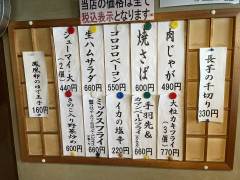 当店の価格は全て
税込表示となります。
長芋の千切り
330円
肉じゃが
490円
焼さば
600円
コロコロベーコン
550円
生ハムサラダ
660円
シューマイ・大
(2個)
440円
大粒カキフライ
(3個)
770円
手羽先&
660円
イカの塩辛
220円
ミックスフライ
660円
きのこ入り野菜炒め
600円
鳳凰卵のゆで玉子
160円